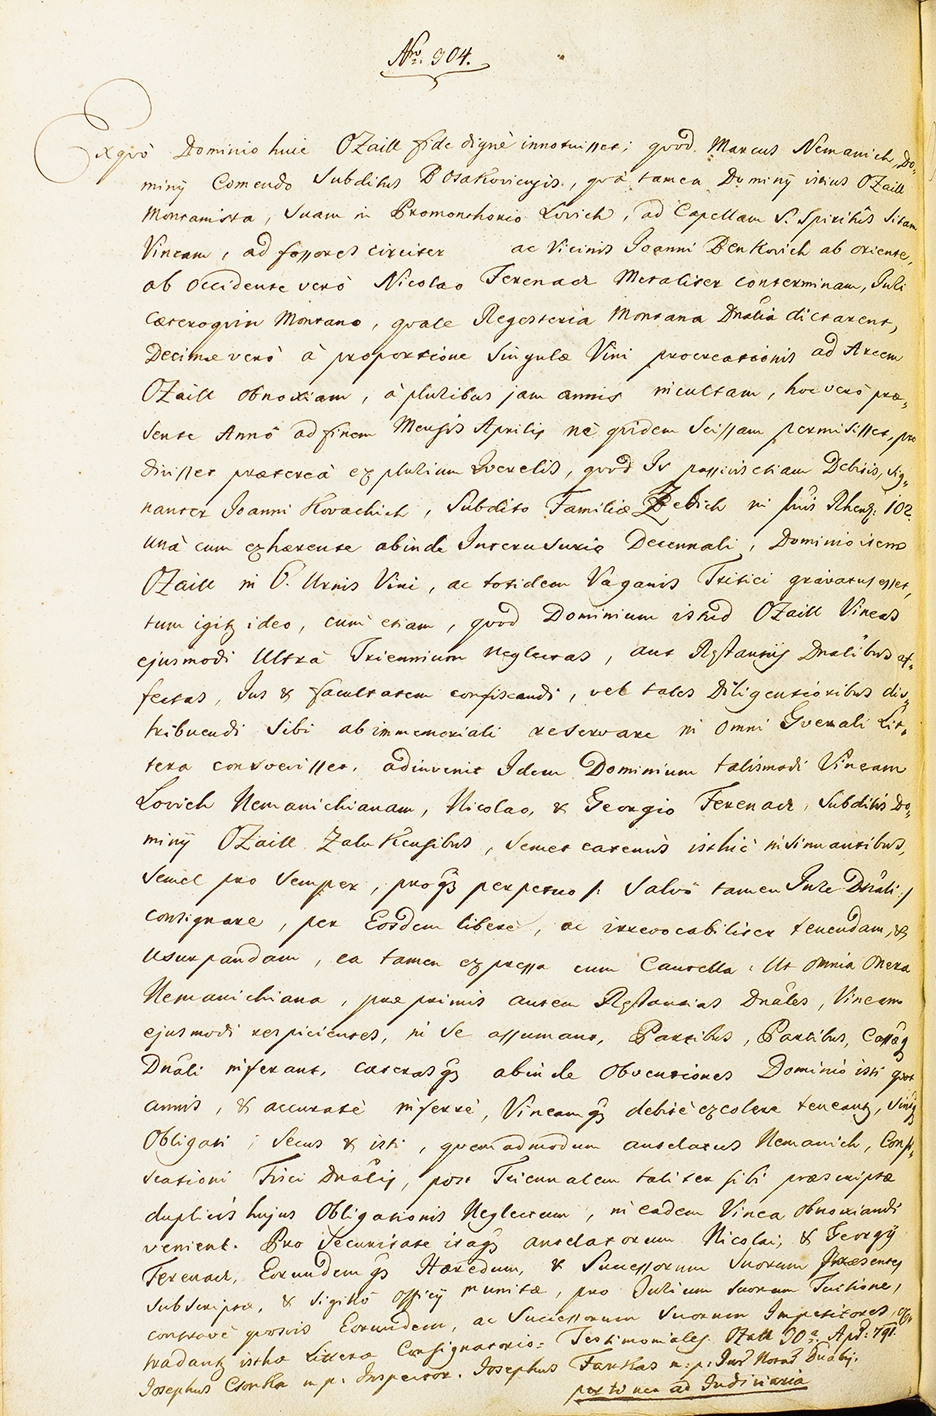 Nro. 904.
Exquo Dominio huic OZaill fide digne innotuisset; quod Marcus Nemanich, Do-
miny Comendo Subditus Bosakoviensis, qua tamen Dominy istius OZaill
Montanista, Suam in Promonthorio Lovich, ad Capellam S. Spiritûs Sitam
Vineam, ad fossores circiter ac Vicinis Joanni Benkovich ab oriente,
ab Occidente verò Nicolao Ferenacz Metaliter conterminam, Juri
Cæteroquin Montano, quale Regesteria Montana Dnalia dictarent,
Decimæ verò à proportione Singulæ Vini procreationis ad Arcem
OZaill obnoxiam, à pluribus jam annis incultam, hoc verò præ-
sente Annô ad finem Mensis Aprilis nè quidem Scissam permisisset,
divisset prætereà ex plurium Querelis, quod Is passivis etiam Debitis, sig-
nanter Joanni Kovachich, Subdito Familiæ Zebich in Rhen: 102
unà cum exhærente abinde Interusurio Decennali, Dominio item
OZaill in 6. Urnis Vini, ac totidem Vaganis Tritici gravatus esset,
tum igitr ideo, cum etiam, quod Dominium istud OZaill Vineas
ejusmodi Ultrà Triennium neglectas, aut Rstantys Dnalibus af-
fectas, Jus & facultatem confiscandi, vel tales Diligentioribus dis
tribuendi Sibi ab immemoriali reservare in omni Gvernali Lit-
tera consvevisset. adinvenit Idem Dominium talismodi Vineam
Lovich Nemanichianam, Nicolao, & Georgio Ferenacz, Subditis Do-
miny OZaill Zalukensibus, Semet eatenùs isthic insinuantibus,
Semel pro Semper, proqs perpetuo /: Salvô tamen Jure Dnali :/
Consignare, per Eosdem liberè, ac irrevocabiliter tenendam, &
Usurpandam, ea tamen expressa cum Cautella: Ut omnia Onera
Nemanichiana, præprimis autem Rstantias Dnales, Vineam
ejusmodi respicientes, in Se assumant, Partibus, Partibus, Cassæq
Dnali inferant, cæterasqs abinde Obventiones Dominio isti quot
annis, & accuratè inferre, Vineamqs debitè excolere teneantr,
Obligati; Secus & isti, quemadmodum antelatus Nemanich, Confi-
scationi Fisci Dnalis, post Triennalem taliter sibi præscriptæ
duplicis hujus Obligationis Neglectum, in eadem Vinea obnoxiandi
venient. Pro Securitate itaqs antelatorum Nicolai, & Georgy
Ferenacz, Eorundemqs Hæredum, & Successorum Suorum Præsentes
Subscriptæ, & Sigillô Officy munitæ, pro Jurium Suorum Tuitione,
contravè quosvis Eorundem, ac Successorum Suorum Impetitores,
tradantr isthæ Litteræ Consignatorio-Testimoniales. OZall 30a Apr: 791.
Josephus Csonka m. p. Inspector. Josephus Farkas m: p: Jur. Dnaly.
pertinea ad Judiciaria